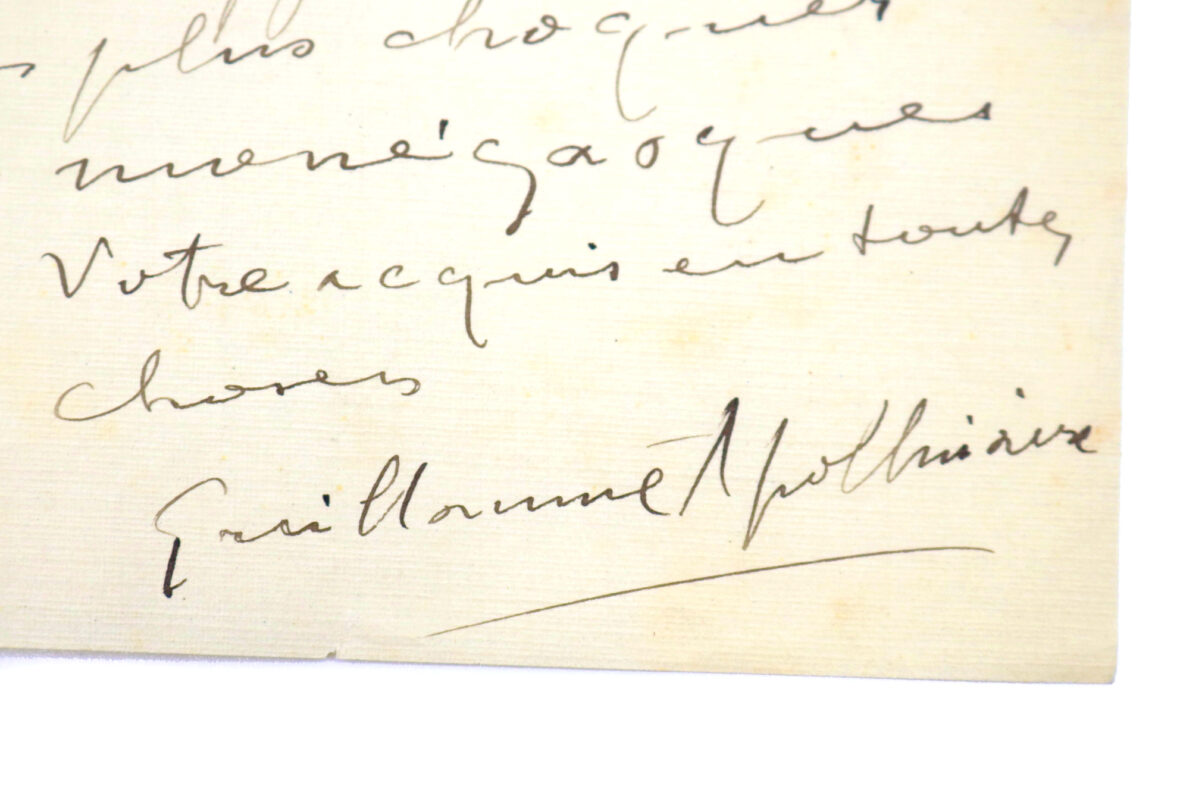 plus
monégasques
Votre acquis en toutes
choses
Guillaume Apollinaire